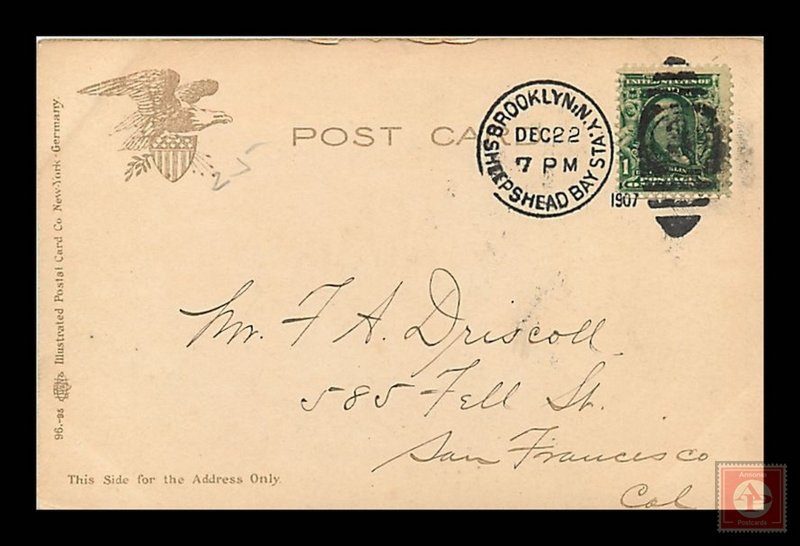 POST CARD
BROOKLYN, N.Y.
SHEEPSHEAD BAY STA.
DEC 22
7 PM
1907
UNITED STATES OF
1
POSTAGE
25
Mr. F A. Driscoll
585 Fell St.
San Francisco
Cal
96.-95 Illustrated Postal Card Co New-York-Germany.
This Side for the Address Only.
Ansonia
AP
Postcards